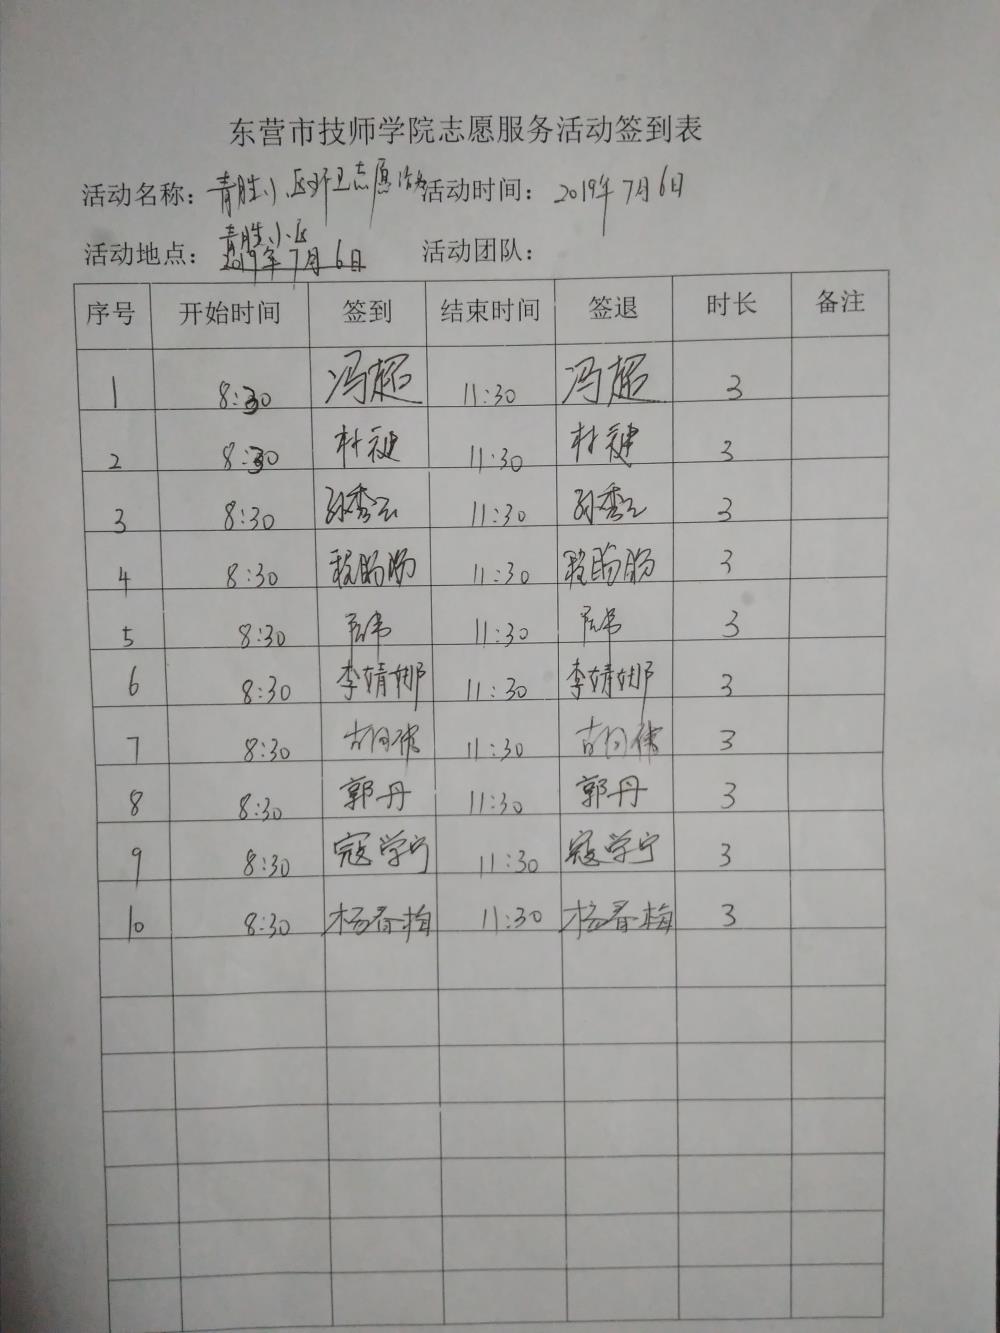 东营市技师学院志愿服务活动签到表
活动名称：青胜小区环卫志愿活动 活动时间：2019年7月6日
青胜小区
活动地点：2019年7月6日 活动团队：
序号 开始时间 签到 结束时间 签退 时长 备注
1 8:30 冯超 11:30 冯超 3
2 8:30 11:30 3
3 8:30 孙秀云 11:30 孙秀云 3
4 8:30 11:30 3
5 8:30 11:30 3
6 8:30 李婧娜 11:30 李婧娜 3
7 8:30 11:30 3
8 8:30 郭丹 11:30 郭丹 3
9 8:30 寇学宁 11:30 寇学宁 3
10 8:30 杨春梅 11:30 杨春梅 3